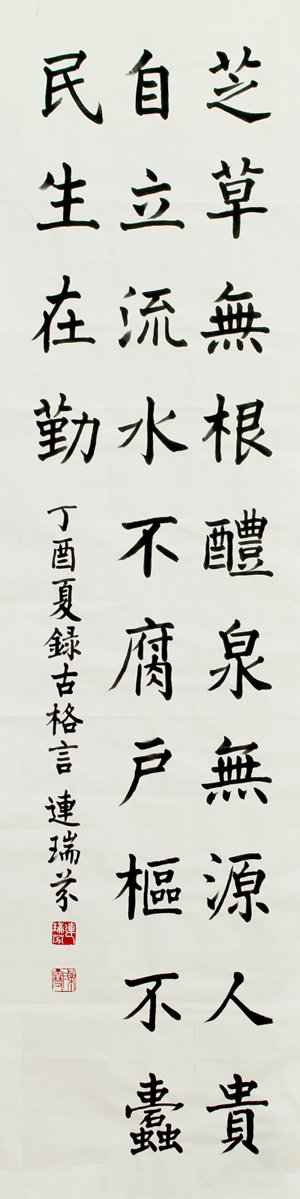 芝草無根醴泉無源人貴
自立流水不腐户樞不蠹
民生在勤
丁酉夏録古格言 連瑞芬
連瑞芬